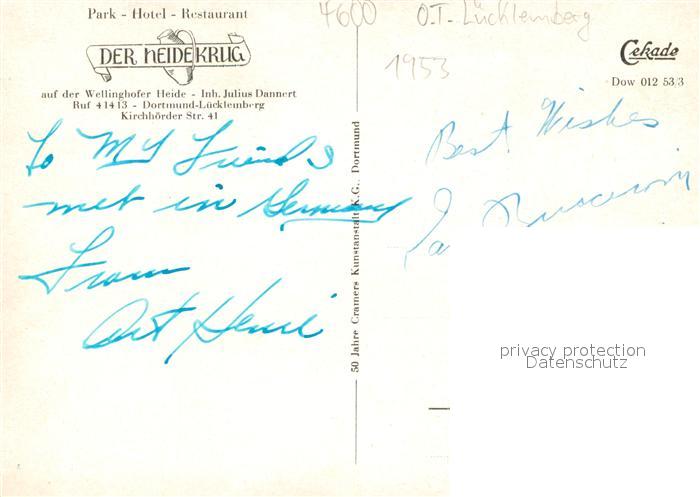 Park - Hotel - Restaurant
DER HEIDEKRUG
auf der Wellinghofer Heide - Inh. Julius Dannert
Ruf 41413 - Dortmund-Lücklemberg
Kirchhörder Str. 41
To My Friends
met in Germany
From
Art
50 Jahre Cramers Kunstanstalt K.G., Dortmund
4600 O.T. Lücklemberg
1953
Cekade
Dow 012 53/3
Best Wishes
privacy protection
Datenschutz